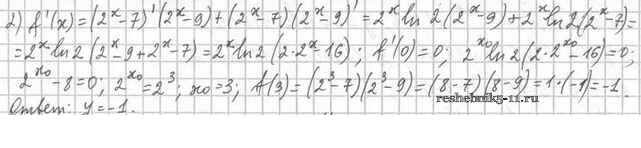 2) f'(x)=(2^x-7)'(2^x-9)+(2^x-7)(2^x-9)'=2^x ln 2(2^x-9)+2^x ln 2(2^x-7)=
=2^x ln 2(2^x-9+2^x-7)=2^x ln 2(2·2^x-16); f'(0)=0; 2^x0 ln 2(2·2^x0-16)=0;
2^x0-8=0; 2^x0=2^3; x0=3; f(3)=(2^3-7)(2^3-9)=(8-7)(8-9)=1·(-1)=-1.
reshebnik5-11.ru
Ответ: y=-1.